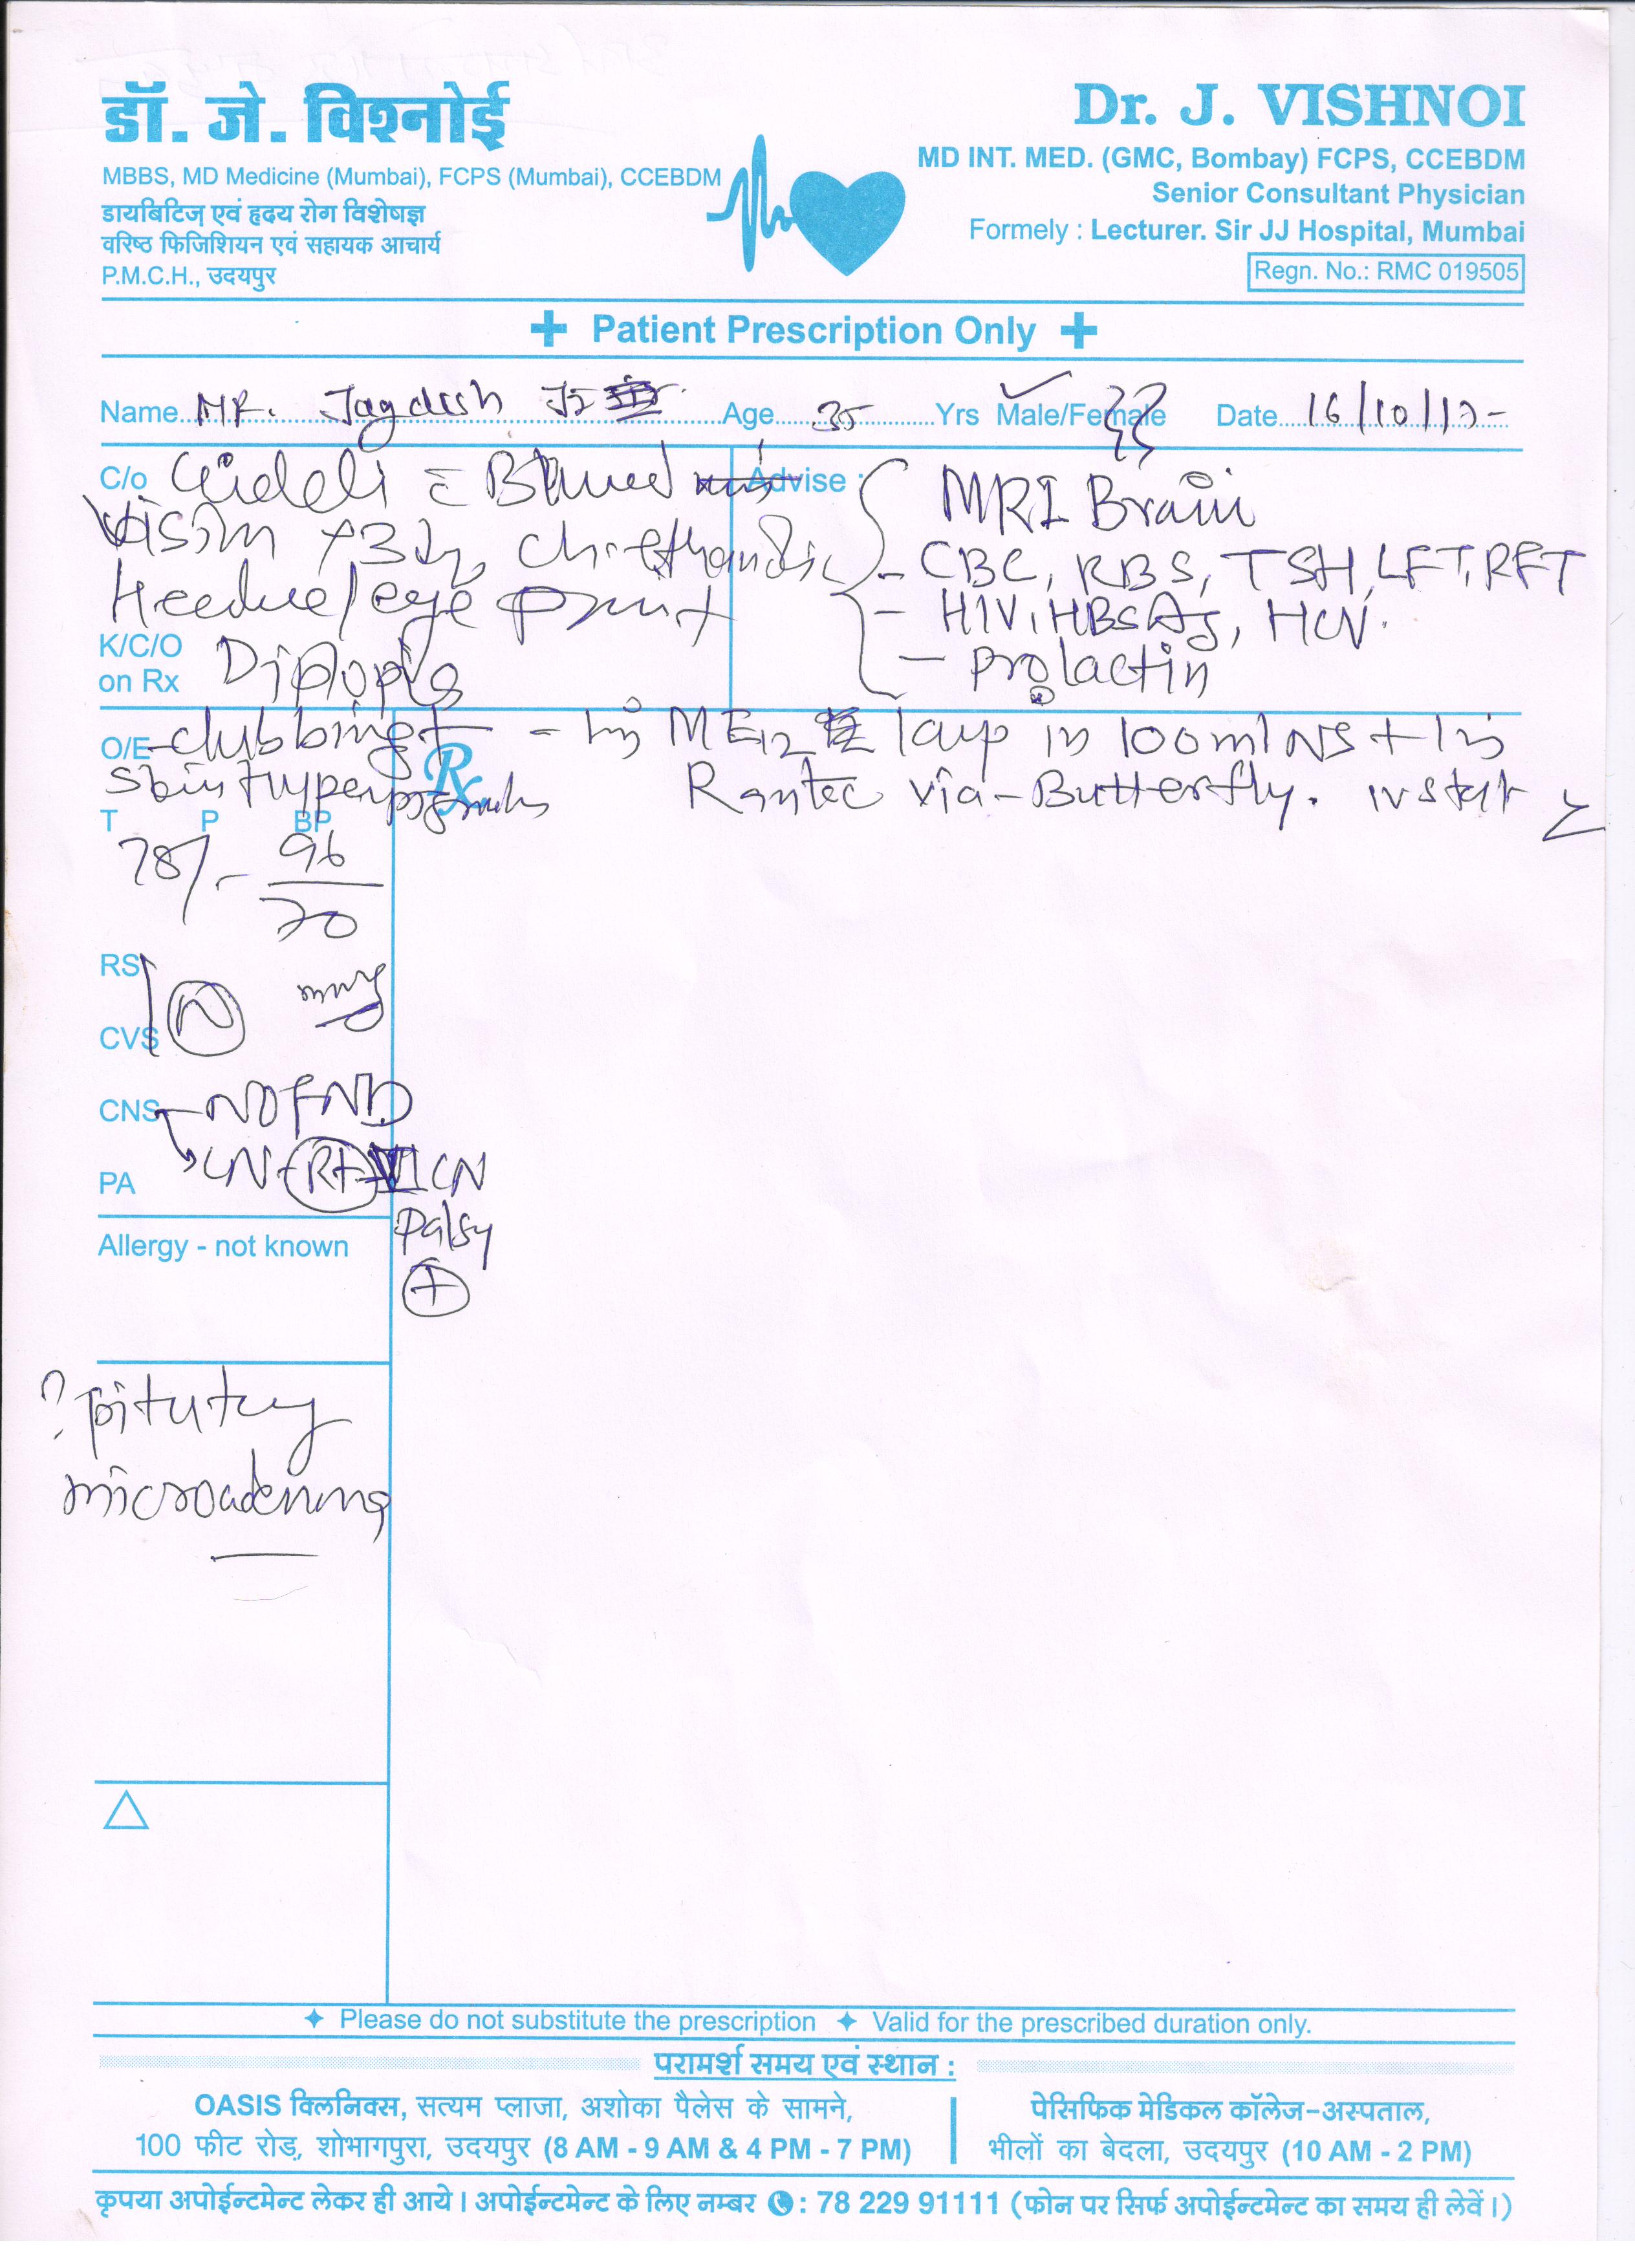 डॉ. जे. विश्नोई
MBBS, MD Medicine (Mumbai), FCPS (Mumbai), CCEBDM
डायबिटिज़ एवं हृदय रोग विशेषज्ञ
वरिष्ठ फिजिशियन एवं सहायक आचार्य
P.M.C.H., उदयपुर
Dr. J. VISHNOI
MD INT. MED. (GMC, Bombay) FCPS, CCEBDM
Senior Consultant Physician
Formely : Lecturer. Sir JJ Hospital, Mumbai
Regn. No.: RMC 019505
+ Patient Prescription Only +
Name MR. Jagdish Age 35 Yrs Male/Female Date 16/10/17
C/o
Vision
eye
K/C/O
on Rx Diplopia
Advise :
MRI Brain
- CBC, RBS, TSH, LFT, RFT
- HIV, HBSAg, HCV.
- Prolactin
O/E - clubbing +
skin
Rx
1 amp in 100ml NS +
Rantec via - Butterfly. IV stat
T P BP
78/- 96/70
RS
CVS N
CNS - NO FND
CN - Rt VI CN
Palsy
+
PA
Allergy - not known
? pitutry
microadenoma
△
✦ Please do not substitute the prescription ✦ Valid for the prescribed duration only.
परामर्श समय एवं स्थान :
OASIS क्लिनिक्स, सत्यम प्लाजा, अशोका पैलेस के सामने,
100 फीट रोड़, शोभागपुरा, उदयपुर (8 AM - 9 AM & 4 PM - 7 PM)
पेसिफिक मेडिकल कॉलेज-अस्पताल,
भीलों का बेदला, उदयपुर (10 AM - 2 PM)
कृपया अपोईन्टमेन्ट लेकर ही आये । अपोईन्टमेन्ट के लिए नम्बर : 78 229 91111 (फोन पर सिर्फ अपोईन्टमेन्ट का समय ही लेवें ।)